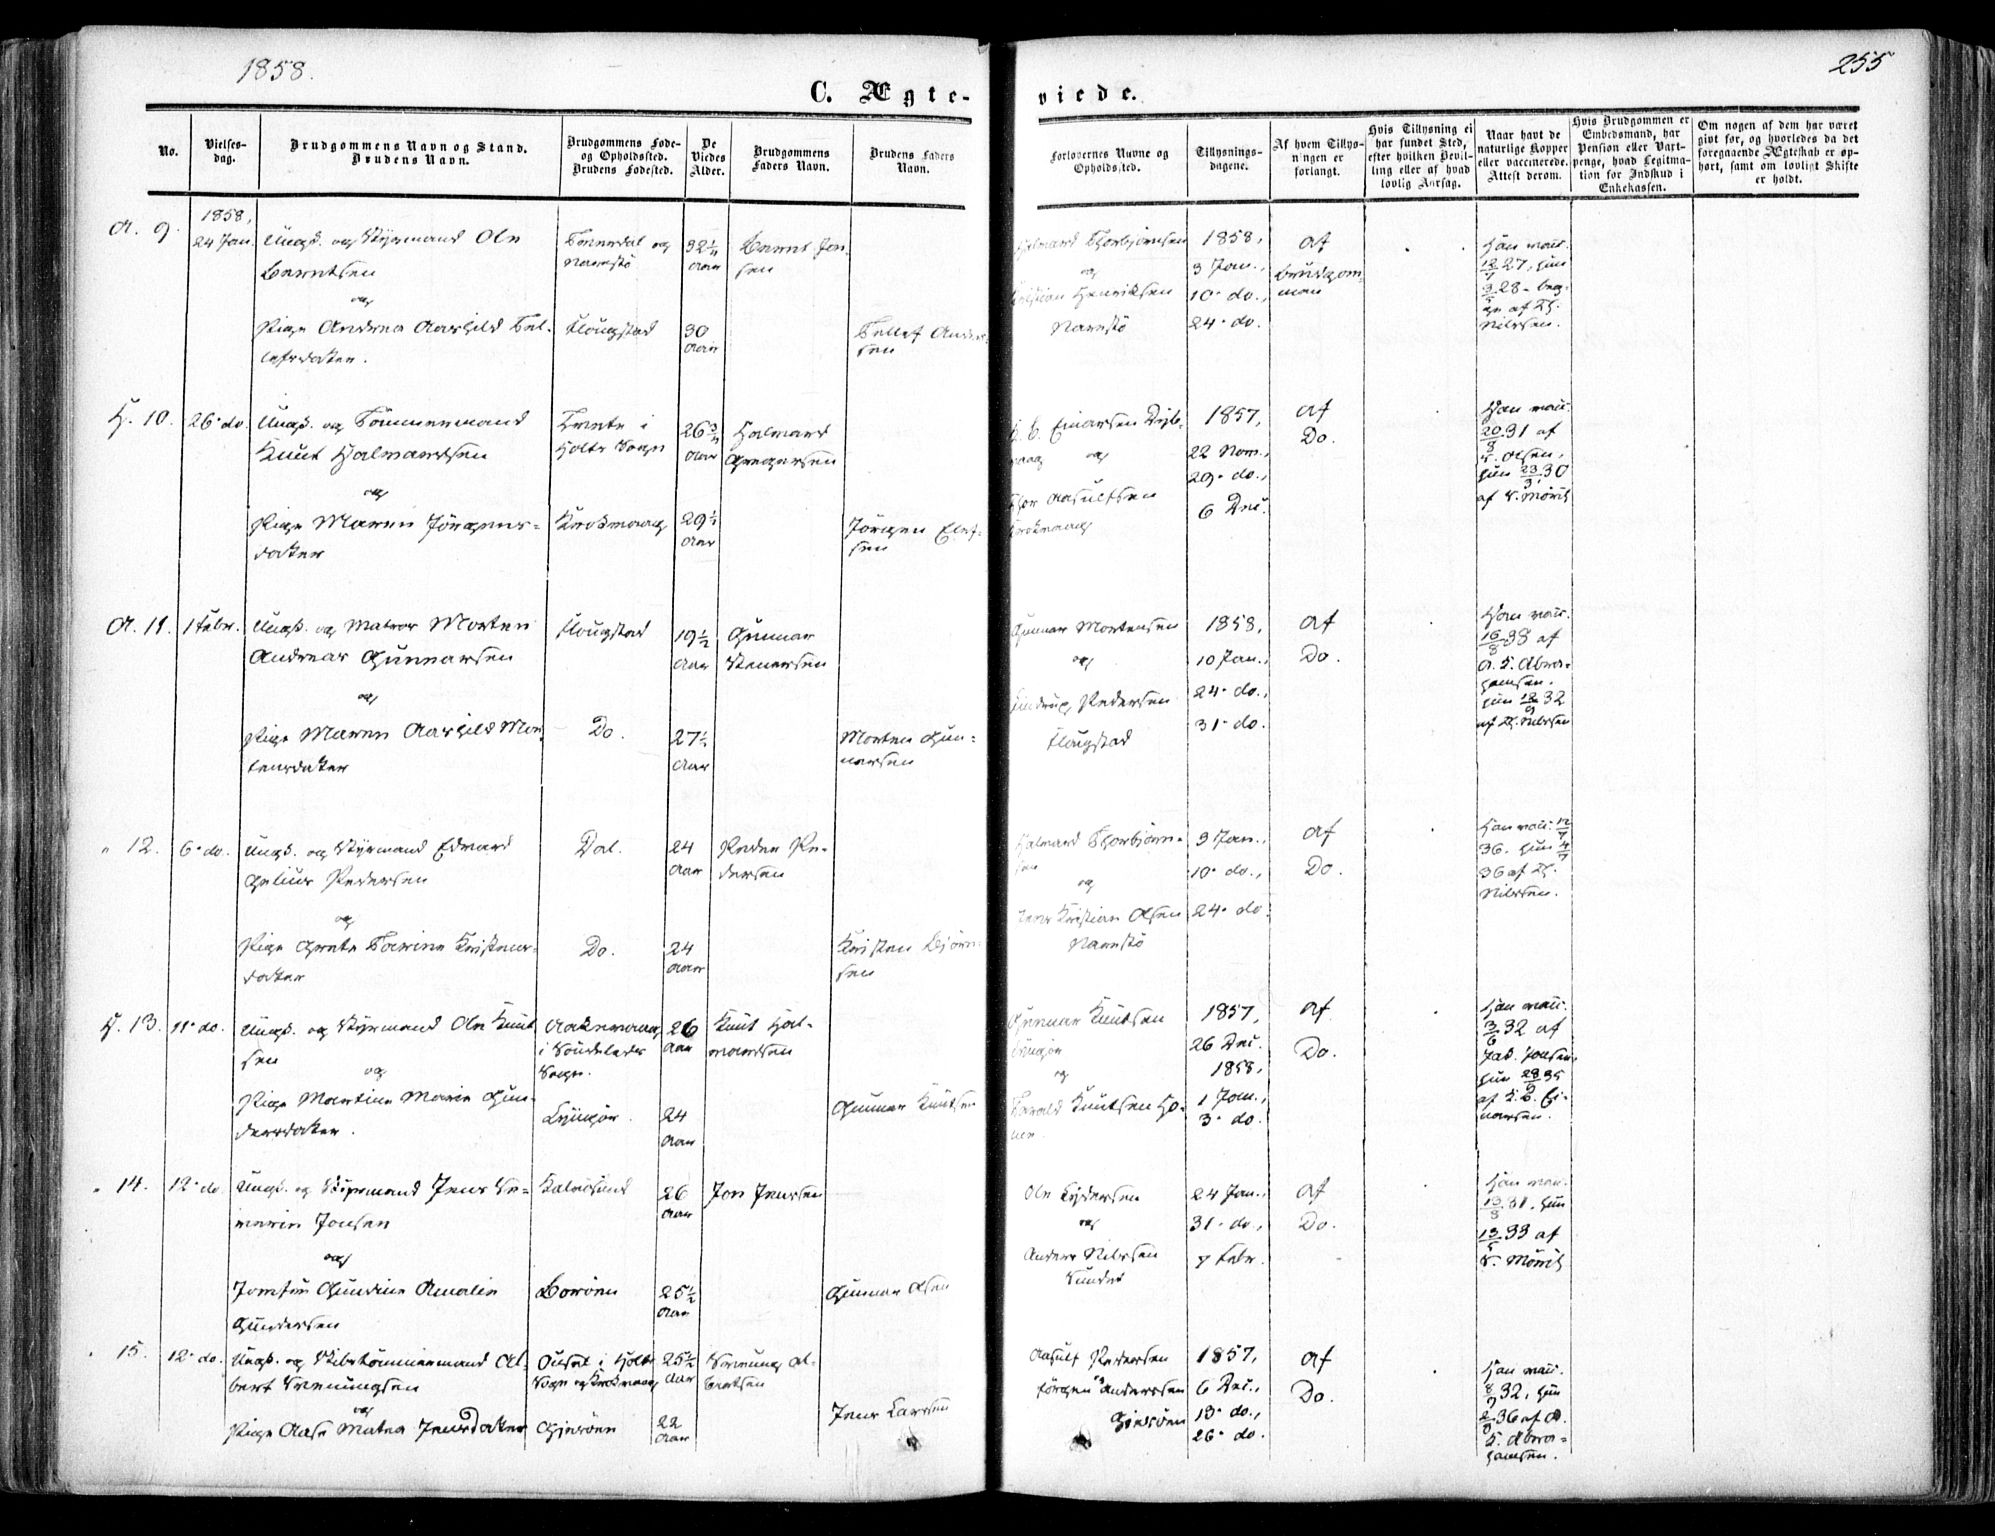 1858.
255
C. Ægte-
viede.
No.
Vielses-
dag.
Brudgommens Navn og Stand.
Brudens Navn.
Brudgommens Føde-
og Opholdssted.
Brudens Fødested.
De
Viedes
Alder.
Brudgommens
Faders Navn.
Brudens Faders
Navn.
Forlovernes Navne og
Opholdssted.
Tillysnings-
dagene.
Af hvem Tillys-
ningen er
forlangt.
Hvis Tillysning ei
har fundet Sted,
efter hvilken Bevil-
ling eller af hvad
lovlig Aarsag.
Naar havt de
naturlige Kopper
eller vaccinerede.
Attest derom.
Hvis Brudgommen er
Embedsmand, har
Pension eller Vart-
penge, hvad Legitima-
tion for Indskud i
Enkekassen.
Om nogen af dem har været
givt før, og hvorledes da det
foregaaende Ægteskab er op-
hørt, samt om lovligt Skifte
er holdt.
A. 9.
1858,
24 Jan.
Ungk. og Styrmand Ole
Berntsen
og
Pige Andrea Aashild Tel-
lefsdatter.
og
Narestø
Flougstad
32
Aar
30
Aar
Bernt Jen-
sen
Tellef Anders-
sen
Halvard Thorbjørnsen
og
Kristian Henriksen
Narestø
1858,
3 Jan.,
10. do.,
24. do.
Af
Brudgom-
men
Han vacc.
27, hun
28
af Th.
Nilssen.
H. 10.
26. do.
Ungk. og Tømmermand
Knut Halvardsen
og
Pige Maren Jørgens-
datter
Tveite i
Holts Sogn
Krokvaag
26
Aar
29½
Aar
Halvard
Gregersen
Jørgen Elef-
sen
K. C. Einarsen Dyb-
vaag og
Thor Aasulfsen
Krokvaag
1857,
22 Nov.,
29. do.,
6 Dec.
Af
Do.
Han vacc.
31 af
Olsen,
hun 30
af
A. 11.
1 Febr.
Ungk. og Matros Morten
Andreas Gunnarsen
og
Pige Maren Aashild Mor-
tensdatter
Flougstad
Do.
19½
Aar
27½
Aar
Gunnar
Stenersen
Morten Gun-
narsen
Gunnar Mortensen
og
Lindrup Pedersen
Flougstad
1858,
10 Jan.,
24. do.,
31. do.
Af
Do.
Han vacc.
38 af
A. S. Abra-
hamsen.
hun 32
af Th. Nilssen
" 12.
6. do.
Ungk. og Styrmand Edvard
Gelius Pedersen
og
Pige Grete Tarine Kristens-
datter
Dal.
Do.
24
Aar
24
Aar
Peder Pe-
dersen
Kristen Bjørn-
sen
Halvard Thorbjørn-
sen
og
Jens Kristian Olsen
Narestø
3 Jan.,
10. do.,
24. do.
Af
Do.
Han vacc. 12/7
36. hun 4/7
36 af Th.
Nilssen.
H. 13.
11. do.
Ungk. og Styrmand Ole Knut-
sen
og
Pige Martine Marie Gun-
dersdatter.
Aakevaag
i Søndeleds
Sogn.
Lyngør.
26
Aar
24
Aar
Knut Hal-
vardsen
Gunnar Knutsen
Gunnar Knutsen
Lyngør
og
Tarald Knutsen Ho-
ven
1857,
26 Dec.
1858,
1 Jan.,
3. do.
Af
Do.
Han vacc.
3/6 32 af
Jak. Jonsen.
hun 35
af K. C. Ei-
narsen.
" 14.
12. do.
Ungk. og Skipsmand Jens Se-
verin Jonsen
og
Jomfru Gundine Amalie
Gundersen
Kalvøsund
Borøen
26
Aar
25½
Aar
Jon Jenssen
Gunnar Olsen
Ole Lydersen
og
Anders Nilssen
Sundet
24 Jan.,
31. do.,
7 Febr.
Af
Do.
Han vacc.
31, hun
33 af
" 15.
12. do.
Ungk. og Skibstømmermand Al-
bert Svenungsen
og
Pige Aase Matea Jensdatter
i Holts
Sogn og Krokvaag
Gjesøen
25½
Aar
22
Aar
Svenung Al-
bertsen
Jens Larssen
Aasulf Pedersen
og
Jørgen Anderssen
Gjesøen
1857,
6 Dec.,
13. do.,
26. do.
Af
Do.
Han vacc.
32, hun
36 af A.
S. Abra-
hamsen.